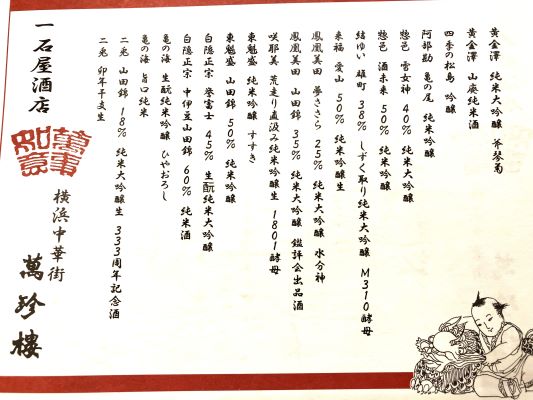 黄金澤 純米大吟醸 斧琴菊
黄金澤 山廃純米酒
四季の松島 吟醸
阿部勘 亀の尾 純米吟醸
惣邑 雪女神 40% 純米大吟醸
惣邑 酒未来 50% 純米吟醸
結ゆい 雄町 38% しずく取り純米大吟醸 M310酵母
来福 愛山 50% 純米吟醸生
鳳凰美田 夢ささら 25% 純米大吟醸 水分神
鳳凰美田 山田錦 35% 純米大吟醸 鑑評会出品酒
咲耶美 荒走り直汲み純米吟醸生 1801酵母
東魁盛 純米吟醸 すすき
東魁盛 山田錦 50% 純米吟醸
白隠正宗 誉富士 45% 生酛純米大吟醸
白隠正宗 中伊豆山田錦 60% 純米酒
亀の海 生酛純米吟醸 ひやおろし
亀の海 旨口純米
二兎 山田錦 18% 純米大吟醸生 333周年記念酒
二兎 卯年干支生
一石屋酒店
萬事如意
横浜中華街
萬珍樓